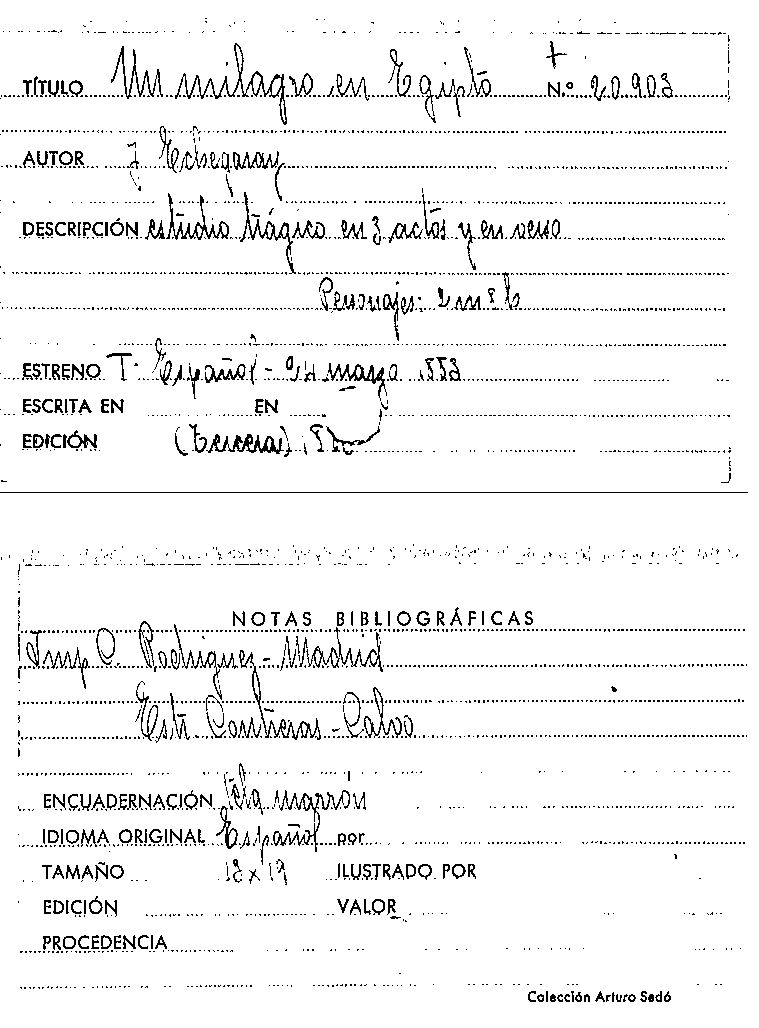 TÍTULO Un milagro en Egipto N.º 20903
AUTOR J Echegaray
DESCRIPCIÓN estudio trágico en 3 actos y en verso
Personajes: 2 m 8 h
ESTRENO T. Español - 24 marzo 1883
ESCRITA EN EN
EDICIÓN (tercera) 18
NOTAS BIBLIOGRÁFICAS
Imp C. Rodriguez - Madrid
Estr. Contreras - Calvo
ENCUADERNACIÓN tela marron
IDIOMA ORIGINAL Español por
TAMAÑO 13 x 19 ILUSTRADO POR
EDICIÓN VALOR
PROCEDENCIA
Colección Arturo Sedó